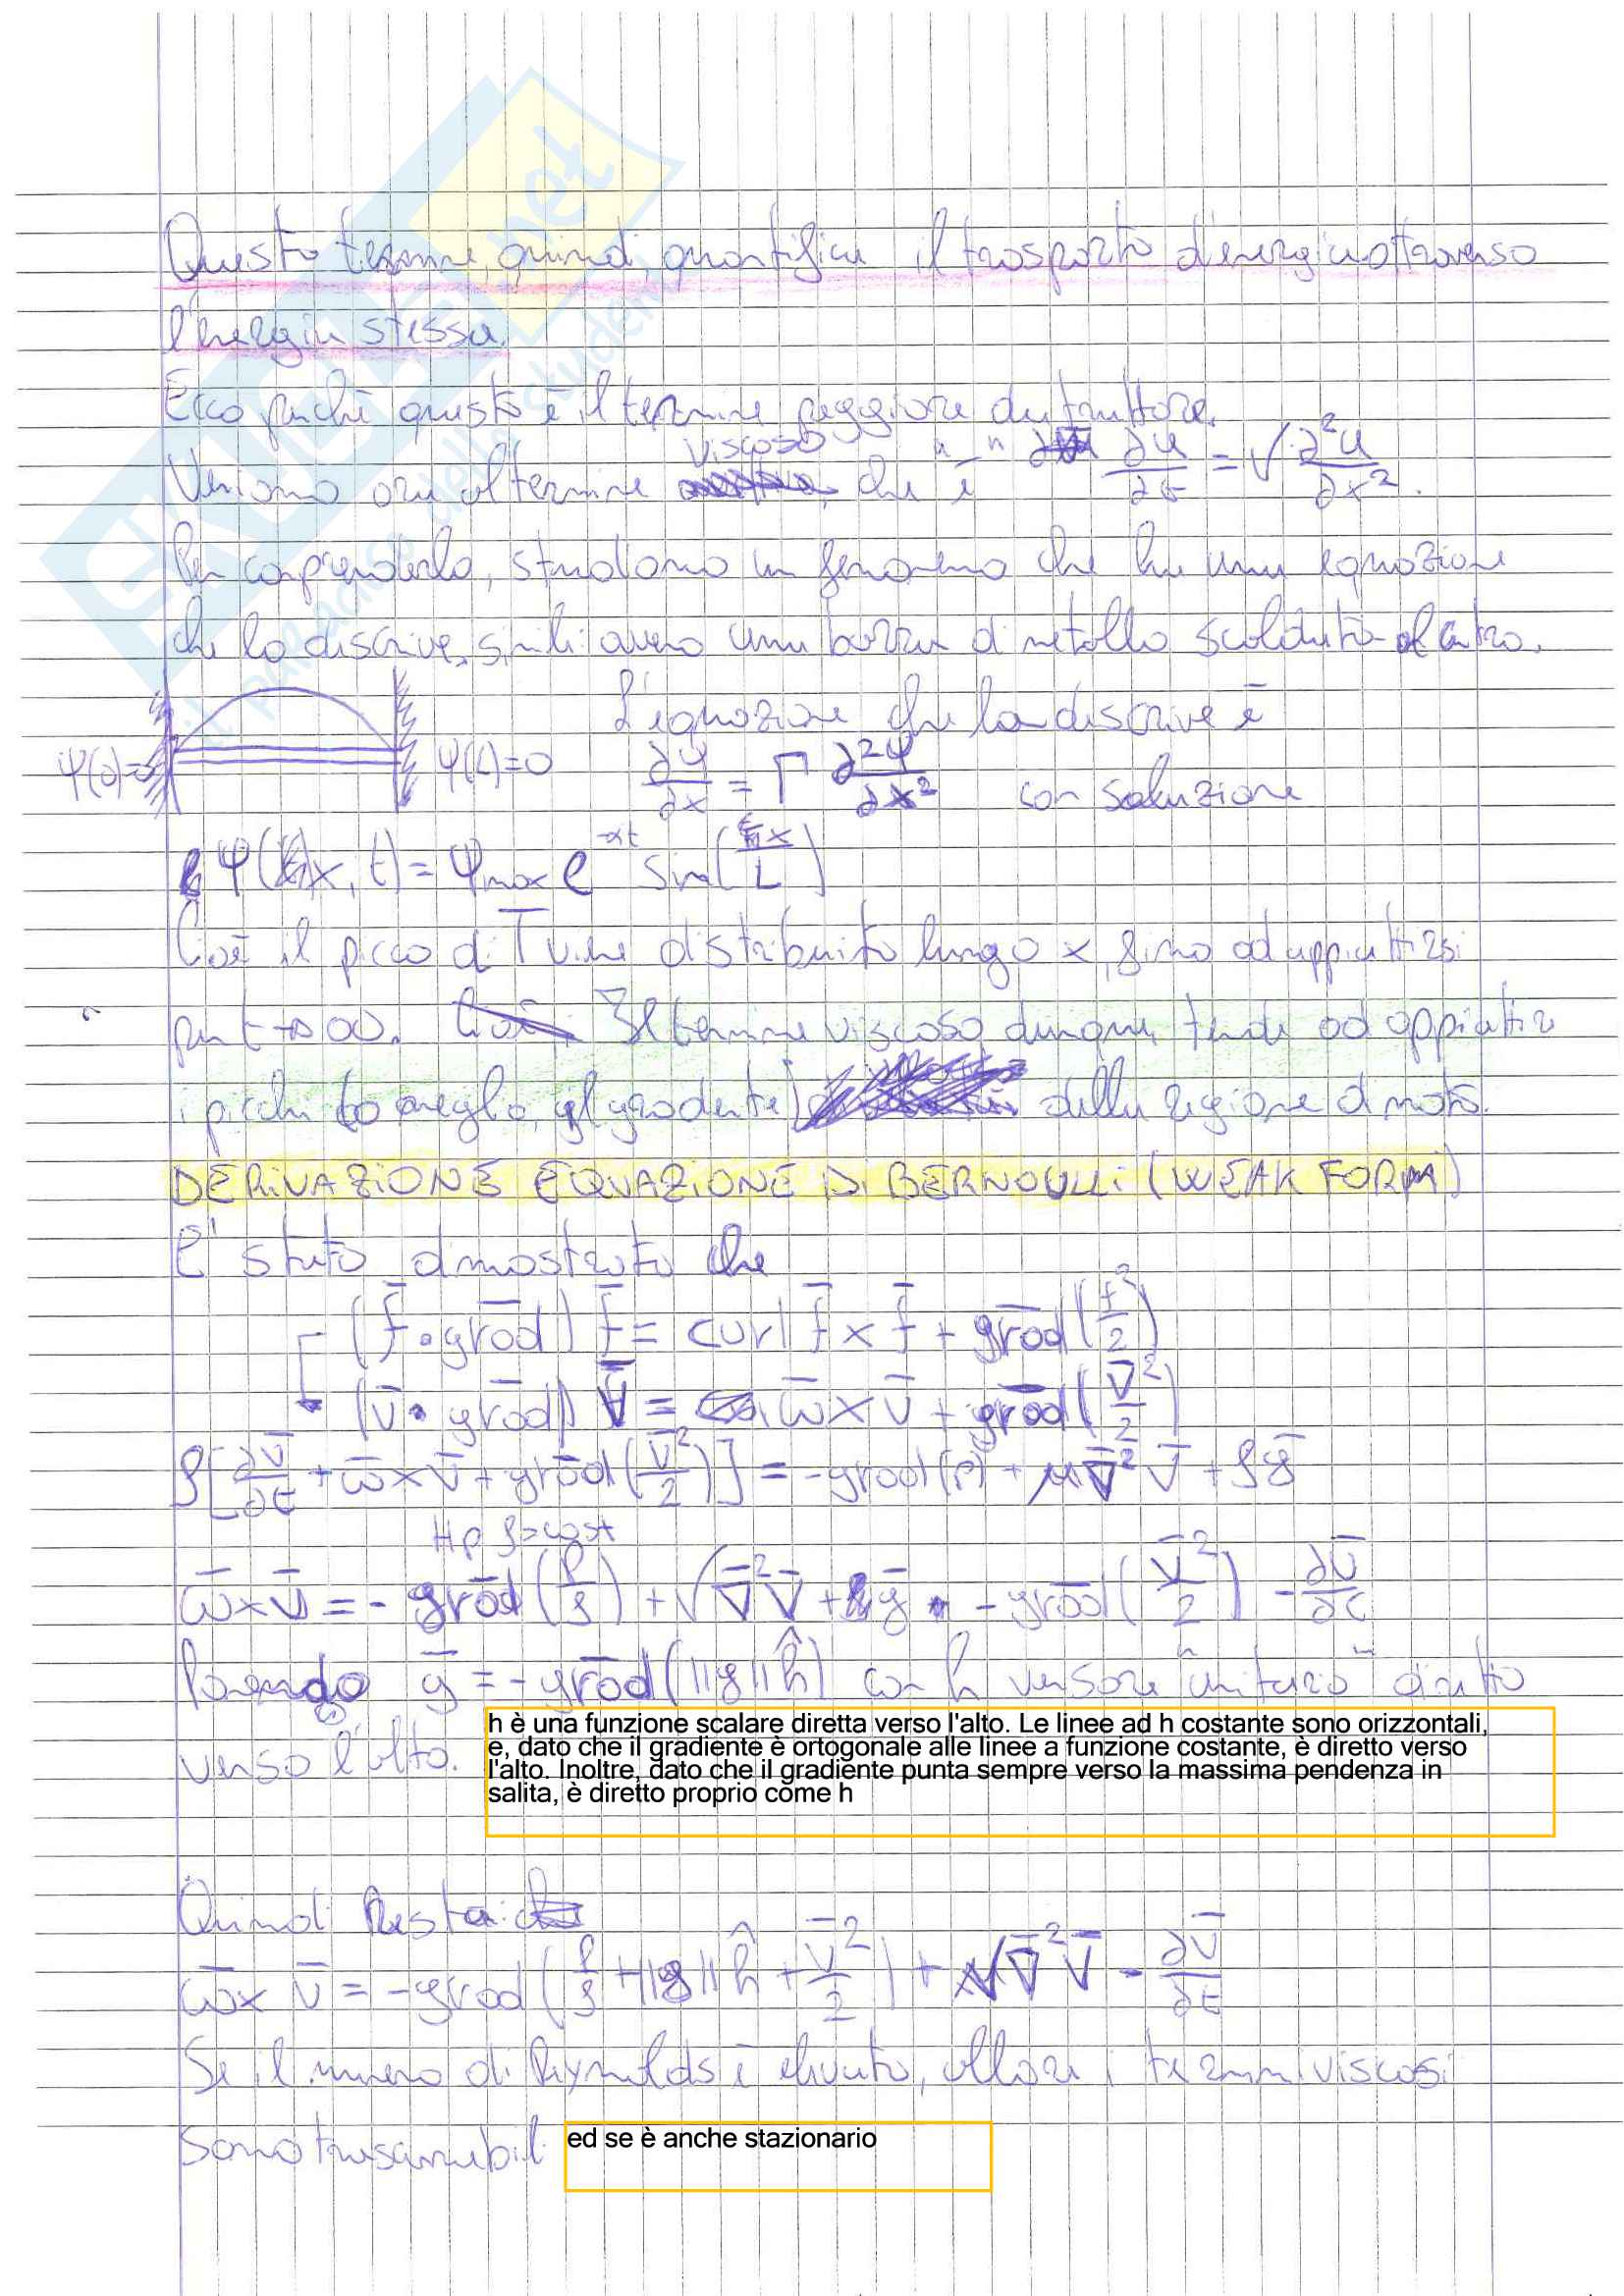 Questo termine, quindi, quantifica il trasporto d'energia attraverso
l'energia stessa.
Ecco perché questo è il termine peggiore da trattare.
viscoso
Veniamo ora al termine che "è" ∂u/∂t = √ ∂²u/∂x².
Per comprenderlo, studiamo un fenomeno che ha una equazione
che lo descrive simile: ovvero una barra di metallo scaldata al centro.
L'equazione che la descrive è
ψ(0)=0 ψ(L)=0 ∂ψ/∂x = Γ ∂²ψ/∂x² con soluzione
ψ(x,t) = ψmax e^-αt sin(πx/L)
Cioè il picco di T viene distribuito lungo x, fino ad appiattirsi
per t→∞. Il termine viscoso, dunque, tende ad appiattire
i picchi (o meglio, il gradiente) della regione di moto.
DERIVAZIONE EQUAZIONE DI BERNOULLI (WEAK FORM)
E' stato dimostrato che
(f̄•grad) f̄ = curl f̄ × f̄ + grad(f²/2)
(v̄•grad) v̄ = ω̄×v̄ + grad(v̄²/2)
ρ[∂v̄/∂t + ω̄×v̄ + grad(v̄²/2)] = -grad(p) + μ∇̄²v̄ + ρḡ
Hp ρ=cost
ω̄×v̄ = -grad(p/ρ) + √∇̄²v̄ + ḡ - grad(v̄²/2) - ∂v̄/∂t
Ponendo ḡ = -grad(||g||ĥ) con h versore "unitario" diretto
verso l'alto.
h è una funzione scalare diretta verso l'alto. Le linee ad h costante sono orizzontali,
e, dato che il gradiente è ortogonale alle linee a funzione costante, è diretto verso
l'alto. Inoltre, dato che il gradiente punta sempre verso la massima pendenza in
salita, è diretto proprio come h
Quindi resta:
ω̄×v̄ = -grad(p/ρ + ||g||ĥ + v̄²/2) + √∇̄²v̄ - ∂v̄/∂t
Se il numero di Reynolds è elevato, allora i termini viscosi
sono trascurabili
ed se è anche stazionario